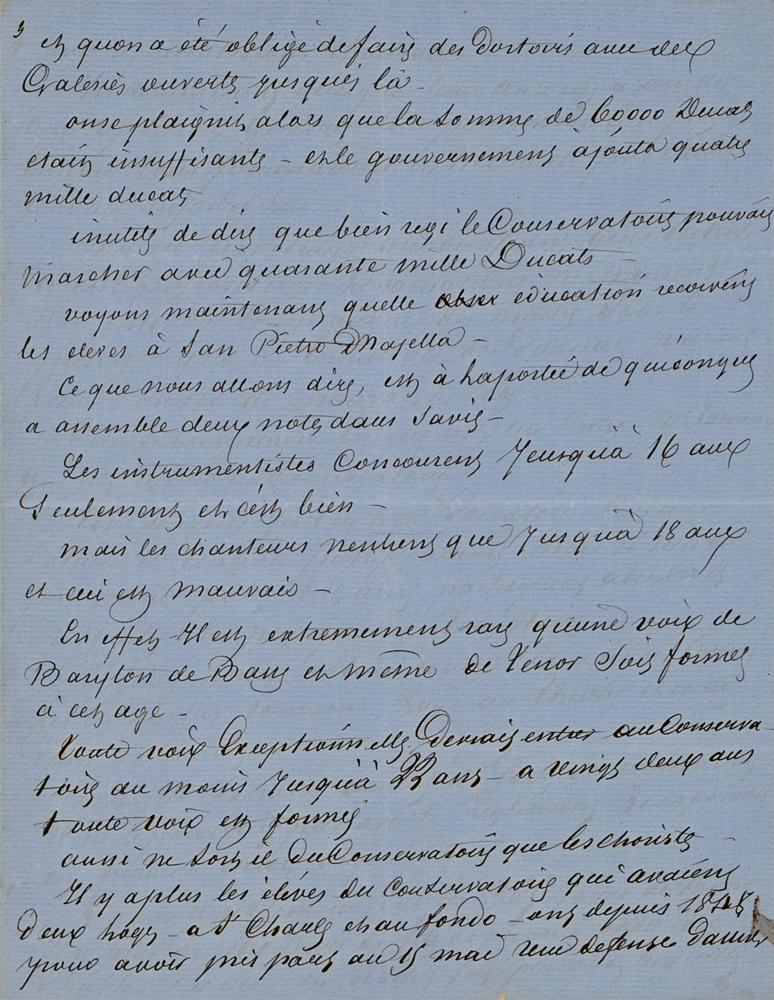 3
et quon a été obligé de faire des Dortoirs avec des
Galeries ouvertes jusques là -
on se plaignit alors que la somme de 60000 Ducats
etait insuffisante - et le gouvernement ajouta quatre
mille ducats
inutile de dire que bien regi le Conservatoire pouvait
marcher avec quarante mille Ducats -
voyons maintenant quelle education recoivent
les eleves à San Pietro Majella -
Ce que nous allons dire, est à la portée de quiconque
a assemble deux notes dans sa vie -
Les instrumentistes Concourent Jusqu'à 16 ans
Seulement et c'est bien -
mais les chanteurs n'entrent que Jusqu'à 18 ans
et ceci est mauvais -
En effet Il est extremement rare qu'une voix de
Baryton de Basse et même de Tenor Soit formee
à cet age -
Toute voix Exceptionnelle Devrait entrer au Conserva-
toire au moins Jusqu'à 22 ans - a vingt deux ans
toute voix est formée
aussi ne sort il du Conservatoire que les choristes -
Il y a plus les élèves du Conservatoire qui avaient
Deux loges - a St Charles et au fondo - ont depuis 1848
pour avoir pris part au 15 mai vu defense